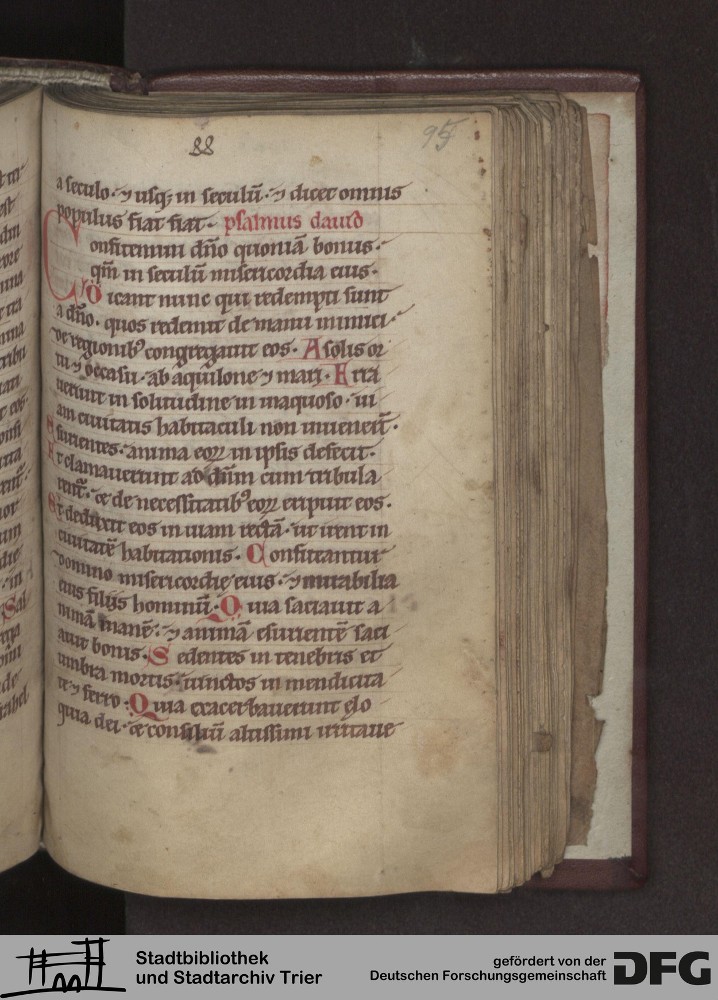 88
95
a seculo · ⁊ usq; in seculū · ⁊ dicet omnis
populus fiat fiat · psalmus dauid
Confitemini dño quoniā bonus ·
qm̄ in seculū misericordia eius ·
Dicant nunc qui redempti sunt
a dño · quos redemit de manu inimici ·
de regionibꝫ congregauit eos · A solis or
tu ⁊ occasu · ab aquilone ⁊ mari · Erra
uerunt in solitudine in inaquoso · ui
am ciuitatis habitaculi non inuenert̄ ·
Esurientes · anima eoꝝ in ipsis defecit ·
Et clamauerunt ad dñm cum tribula
rent̄ · & de necessitatibꝫ eoꝝ eripuit eos ·
Et deduxit eos in uiam rectā · ut irent in
ciuitatē habitationis · Confiteantur
domino misericordię eius · ⁊ mirabilia
eius filiis hominū · Quia satiauit a
nimā inanē · ⁊ animā esurientē saci
auit bonis · Sedentes in tenebris et
umbra mortis · uinctos in mendicita
te ⁊ ferro · Quia exacerbauerunt elo
quia dei · & consiliū altissimi irritaue
Stadtbibliothek
und Stadtarchiv Trier
gefördert von der
Deutschen Forschungsgemeinschaft
DFG